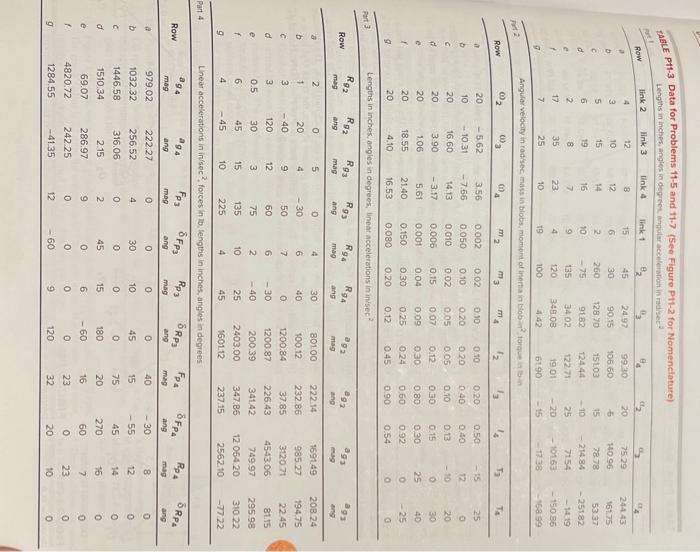 TABLE P11-3 Data for Problems 11-5 and 11-7 (See Figure P11-2 for Nomenclature)
Part 1 Lengths in inches, angles in degrees, angular acceleration in rad/sec²
Row link 2 link 3 link 4 link 1 θ2 θ3 θ4 α2 α3 α4
a 4 12 8 15 45 24.97 99.30 20 75.29 244.43
b 3 10 12 6 30 90.15 106.60 -6 140.96 161.75
c 5 15 14 2 260 128.70 151.03 15 78.78 53.37
d 6 19 16 10 -75 91.82 124.44 -10 -214.84 -251.82
e 2 8 7 9 135 34.02 122.71 25 71.54 -14.19
f 17 35 23 4 120 348.08 19.01 -20 -101.63 -150.86
g 7 25 10 19 100 4.42 61.90 -15 -17.38 -168.99
Part 2 Angular velocity in rad/sec, mass in blobs, moment of inertia in blob-in², torque in lb-in
Row ω2 ω3 ω4 m2 m3 m4 I2 I3 I4 T3 T4
a 20 -5.62 3.56 0.002 0.02 0.10 0.10 0.20 0.50 -15 25
b 10 -10.31 -7.66 0.050 0.10 0.20 0.20 0.40 0.40 12 0
c 20 16.60 14.13 0.010 0.02 0.05 0.05 0.10 0.13 -10 20
d 20 3.90 -3.17 0.006 0.15 0.07 0.12 0.30 0.15 0 30
e 20 1.06 5.61 0.001 0.04 0.09 0.30 0.80 0.30 25 40
f 20 18.55 21.40 0.150 0.30 0.25 0.24 0.60 0.92 0 -25
g 20 4.10 16.53 0.080 0.20 0.12 0.45 0.90 0.54 0 0
Part 3 Lengths in inches, angles in degrees, linear accelerations in in/sec²
Row Rg2 mag Rg2 ang Rg3 mag Rg3 ang Rg4 mag Rg4 ang ag2 mag ag2 ang ag3 mag ag3 ang
a 2 0 5 0 4 30 801.00 222.14 1691.49 208.24
b 1 20 4 -30 6 40 100.12 232.86 985.27 194.75
c 3 -40 9 50 7 0 1200.84 37.85 3120.71 22.45
d 3 120 12 60 6 -30 1200.87 226.43 4543.06 81.15
e 0.5 30 3 75 2 -40 200.39 341.42 749.97 295.98
f 6 45 15 135 10 25 2403.00 347.86 12 064.20 310.22
g 4 -45 10 225 4 45 1601.12 237.15 2562.10 -77.22
Part 4 Linear accelerations in in/sec², forces in lb, lengths in inches, angles in degrees
Row ag4 mag ag4 ang FP3 mag δFP3 ang RP3 mag δRP3 ang FP4 mag δFP4 ang RP4 mag δRP4 ang
a 979.02 222.27 0 0 0 0 40 -30 8 0
b 1032.32 256.52 4 30 10 45 15 -55 12 0
c 1446.58 316.06 0 0 0 0 75 45 14 0
d 1510.34 2.15 2 45 15 180 20 270 16 0
e 69.07 286.97 9 0 6 -60 16 60 7 0
f 4820.72 242.25 0 0 0 0 23 0 23 0
g 1284.55 -41.35 12 -60 9 120 32 20 10 0